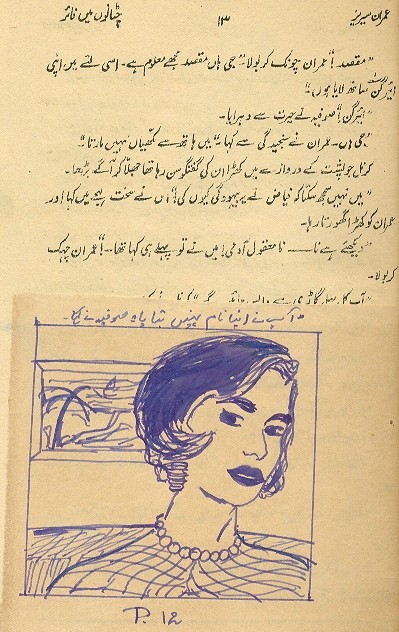 عمران سیریز ۱۳ چٹانوں میں فائر
”مقصد!“ عمران چونک کر بولا۔ ”جی ہاں مقصد مجھے معلوم ہے۔ اسی لئے میں اپنی
ایئرگن ساتھ لایا ہوں۔“
”ایئرگن!“ صوفیہ نے حیرت سے دہرایا۔
”جی ہاں۔ عمران نے سنجیدگی سے کہا۔ ”میں ہاتھ سے مکھیاں نہیں مارتا“
کرنل جو پشت کے دروازے میں کھڑا ان کی گفتگو سن رہا تھا جھلا کر آگے بڑھا۔
”میں نہیں سمجھ سکتا کہ فیاض نے یہ بیہودگی کیوں کی!“ اس نے سخت لہجے میں کہا اور
عمران کو کھڑا گھورتا رہا۔
”دیکھئے ہے نا۔۔۔ نامعقول آدمی! میں نے تو پہلے ہی کہا تھا۔۔!“ عمران چہک
کر بولا۔
”آپ نے اپنا نام نہیں بتایا“ صوفیہ نے کہا۔
P. 12